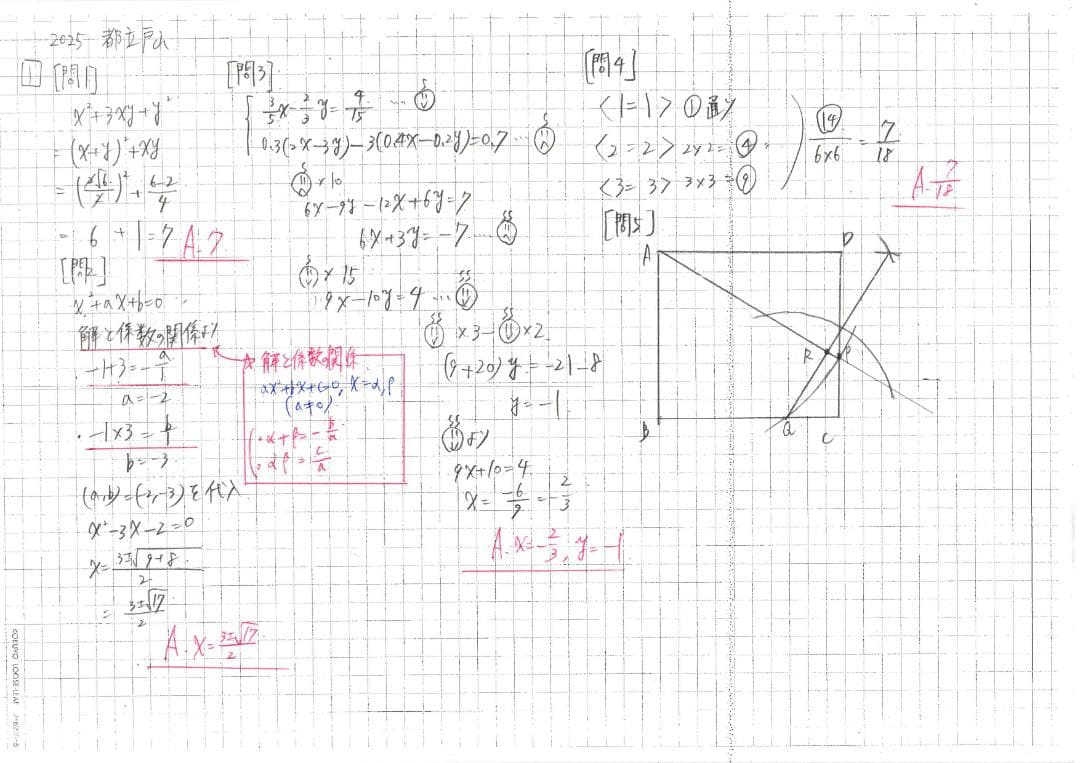 2025 都立戸山
1 [問1]
x²+3xy+y²
=(x+y)²+xy
=(2√6/2)²+(6-2)/4
= 6 +1=7
A. 7
[問2]
x²+ax+b=0
解と係数の関係より
・-1+3=-a/1
a=-2
・-1×3=b/1
b=-3
(a,b)=(-2,-3)を代入
x²-3x-2=0
x=(3±√(9+8))/2
=(3±√17)/2
A. x=(3±√17)/2
☆解と係数の関係
ax²+bx+c=0, x=α,β
(a≠0)
・α+β=-b/a
・αβ=c/a
[問3]
3/5x-2/3y=4/15 …
0.3(2x-3y)-3(0.4x-0.2y)=0.7 …
×10
6x-9y-12x+6y=7
6x+3y=-7 …
×15
9x-10y=4 …
×3- ×2
(9+20)y=-21-8
y=-1
より
9x+10=4
x=-6/9=-2/3
A. x=-2/3, y=-1
[問4]
<1=1> ①通り
<2=2> 2×2=④
<3=3> 3×3=⑨
⑭/6×6=7/18
A. 7/18
[問5]
A
D
R
P
B
Q
C
KOKUYO LOOSE-LEAF